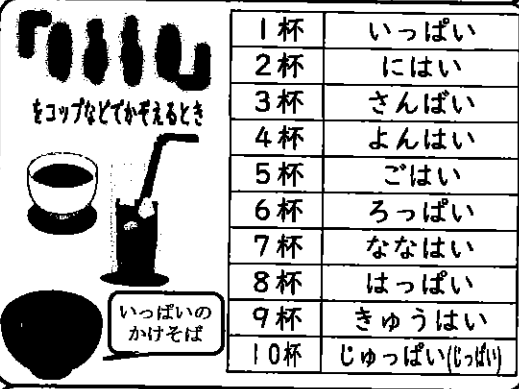 をコップなどでかぞえるとき
いっぱいの
かけそば
1杯 いっぱい
2杯 にはい
3杯 さんばい
4杯 よんはい
5杯 ごはい
6杯 ろっぱい
7杯 ななはい
8杯 はっぱい
9杯 きゅうはい
10杯 じゅっぱい(じっぱい)